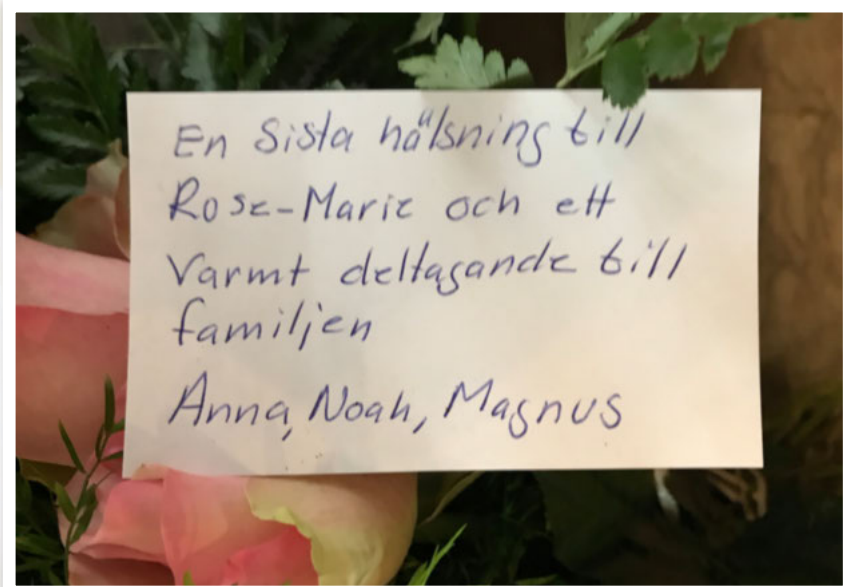 En Sista hälsning till
Rose-Marie och ett
Varmt deltagande till
familjen
Anna, Noah, Magnus